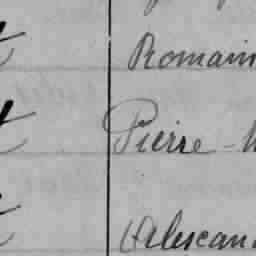 Romain
Pierre-
Alexan